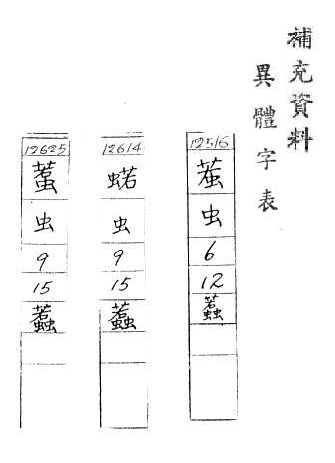 補充資料
異體字表
12516
虫
6
12
蠚
12614
虫
9
15
蠚
12625
虫
9
15
蠚